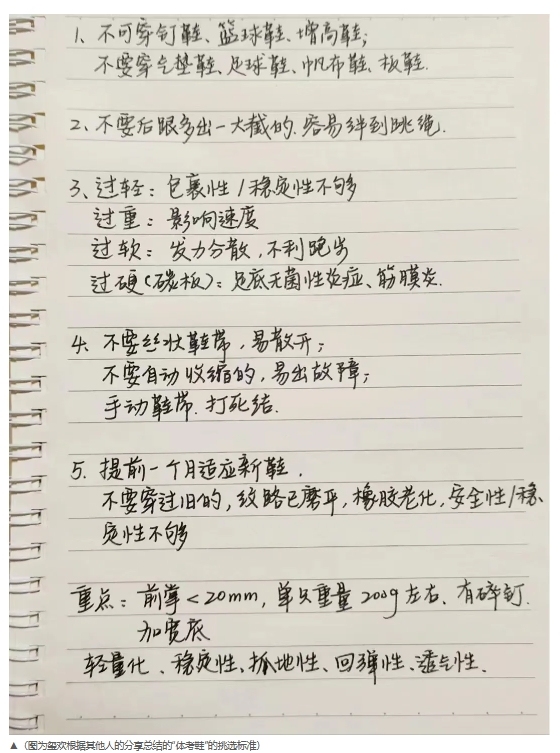 1、不可穿钉鞋、篮球鞋、增高鞋;
不要穿气垫鞋、足球鞋、帆布鞋、板鞋.
2、不要后跟多出一大截的.容易绊到跳绳.
3、过轻:包裹性/稳定性不够
过重:影响速度
过软:发力分散,不利跑步
过硬(碳板):足底无菌性炎症、筋膜炎.
4、不要丝状鞋带,易散开;
不要自动收缩的,易出故障;
手动鞋带.打死结.
5.提前一个月适应新鞋.
不要穿过旧的,纹路已磨平,橡胶老化,安全性/稳
定性不够
重点:前掌<20mm,单只重量200g左右、有碎钉.
加宽底
轻量化、稳定性、抓地性、回弹性、透气性、
▲(图为玺欢根据其他人的分享总结的“体考鞋”的挑选标准)